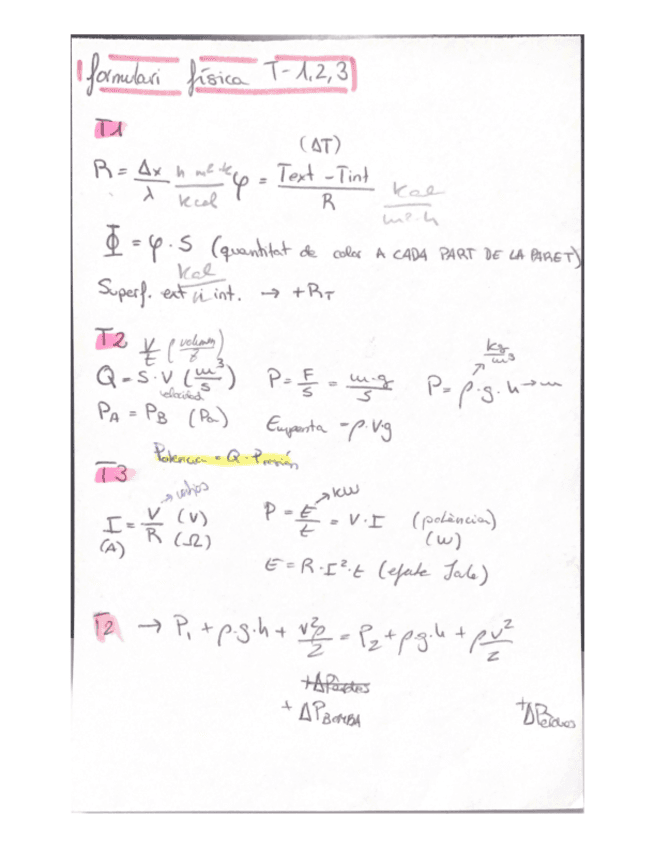 formulari física T-1,2,3
T1
(ΔT)
R = Δx/λ h·m²·k/kcal φ = Text - Tint/R kcal/m²·h
Φ = φ·S (quantitat de calor A CADA PART DE LA PARET)
kcal/h
Superf. ext int. → +R_T
T2 V/t (volumen/t)
Q = S·V (m³/s) P = F/S = m·g/S P = ρ·g·h → m ↗ kg/m³
velocidad
P_A = P_B (Pa) Empenta = ρ·V·g
Potencia = Q·Presión
T3
I = V/R (V) (Ω) → voltios
(A)
P = E/t = V·I (potència) → kW
(W)
E = R·I²·t (efecte Jole)
T2 → P₁ + ρ·g·h + v²ρ/2 = P₂ + ρ·g·h + ρv²/2
+ΔPèrdues
+ ΔP BOMBA +ΔPèrdues